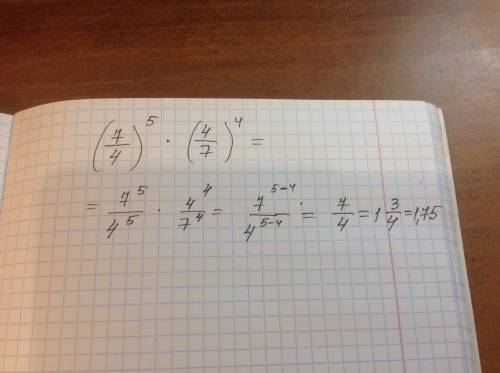 (7/4)^5 · (4/7)^4 =
= 7^5/4^5 · 4^4/7^4 = 7^(5-4)/4^(5-4) = 7/4 = 1 3/4 = 1,75